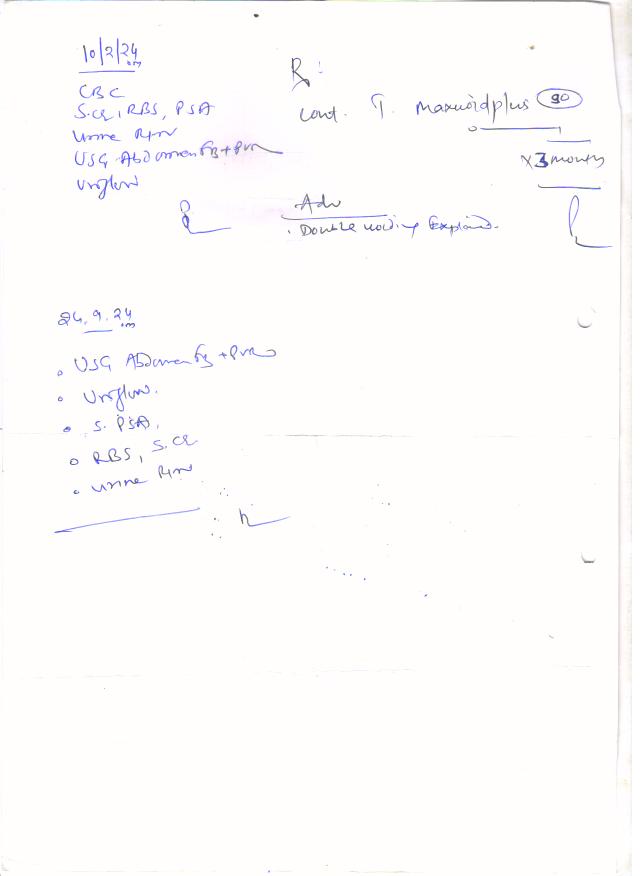 10/2/24
CBC
S.Cr, RBS, PSA
Urine R/M
USG Abdomen FB + PVR
Uroflow
Rx :
Cont. T. Maxvoid plus 90
x 3 months
Adv
. Double voiding Explained.
24.9.24
USG Abdomen FB + PVR
Uroflow.
S. PSA,
RBS, S.Cr
Urine R/M